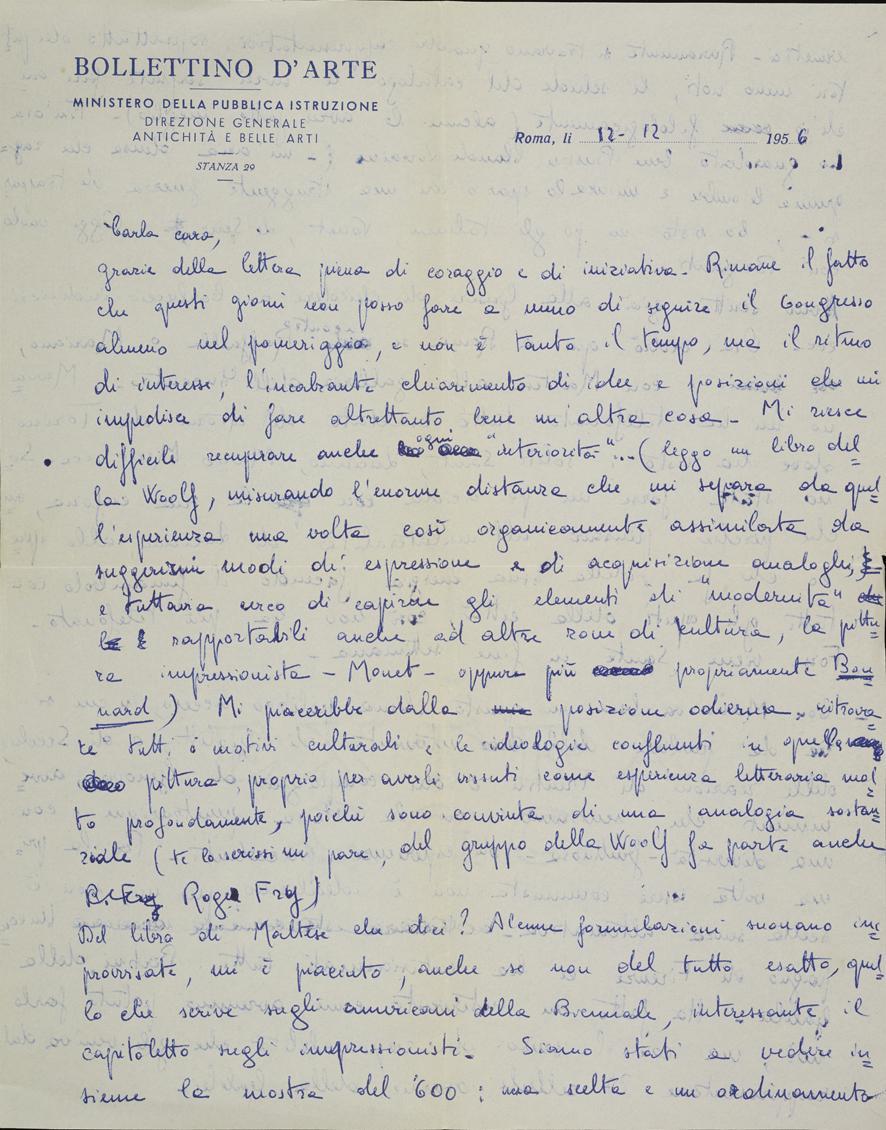 BOLLETTINO D'ARTE
MINISTERO DELLA PUBBLICA ISTRUZIONE
DIREZIONE GENERALE
ANTICHITÀ E BELLE ARTI
STANZA 29
Roma, li 12-12 1956
Carla cara,
grazie della lettera piena di coraggio e di iniziativa. Rimane il fatto
che questi giorni non posso fare a meno di seguire il Congresso
almeno nel pomeriggio, e non è tanto il tempo, ma il ritmo
di interesse, l'incalzante chiarimento di idee e posizioni che mi
impedisce di fare altrettanto bene un'altra cosa. Mi riesce
difficile recuperare anche ogni "interiorità"... (leggo un libro del
la Woolf, misurando l'enorme distanza che mi separa da quel
l'esperienza una volta così organicamente assimilata da
suggerirmi modi di espressione e di acquisizione analoghi,
e tuttavia cerco di capirne gli elementi di "modernità"
rapportabili anche ad altre zone di kultura, la pittu
ra impressionista - Monet - oppure più propriamente Bon
nard) Mi piacerebbe dalla posizione odierna, ritrova
re tutti i motivi culturali e le ideologie confluenti in quella
pittura, proprio per averli vissuti come esperienza letteraria mol
to profondamente, poiché sono convinta di una analogia sostan
ziale (te lo scrissi mi pare, del gruppo della Woolf fa parte anche
Roger Fry)
Del libro di Maltese che dici? Alcune formulazioni suonano im
provvisate, mi è piaciuto, anche se non del tutto esatto, quel
lo che scrive sugli americani della Biennale, interessante il
capitoletto sugli impressionisti. Siamo stati a vedere in
sieme la mostra del '600: una scelta e un ordinamento